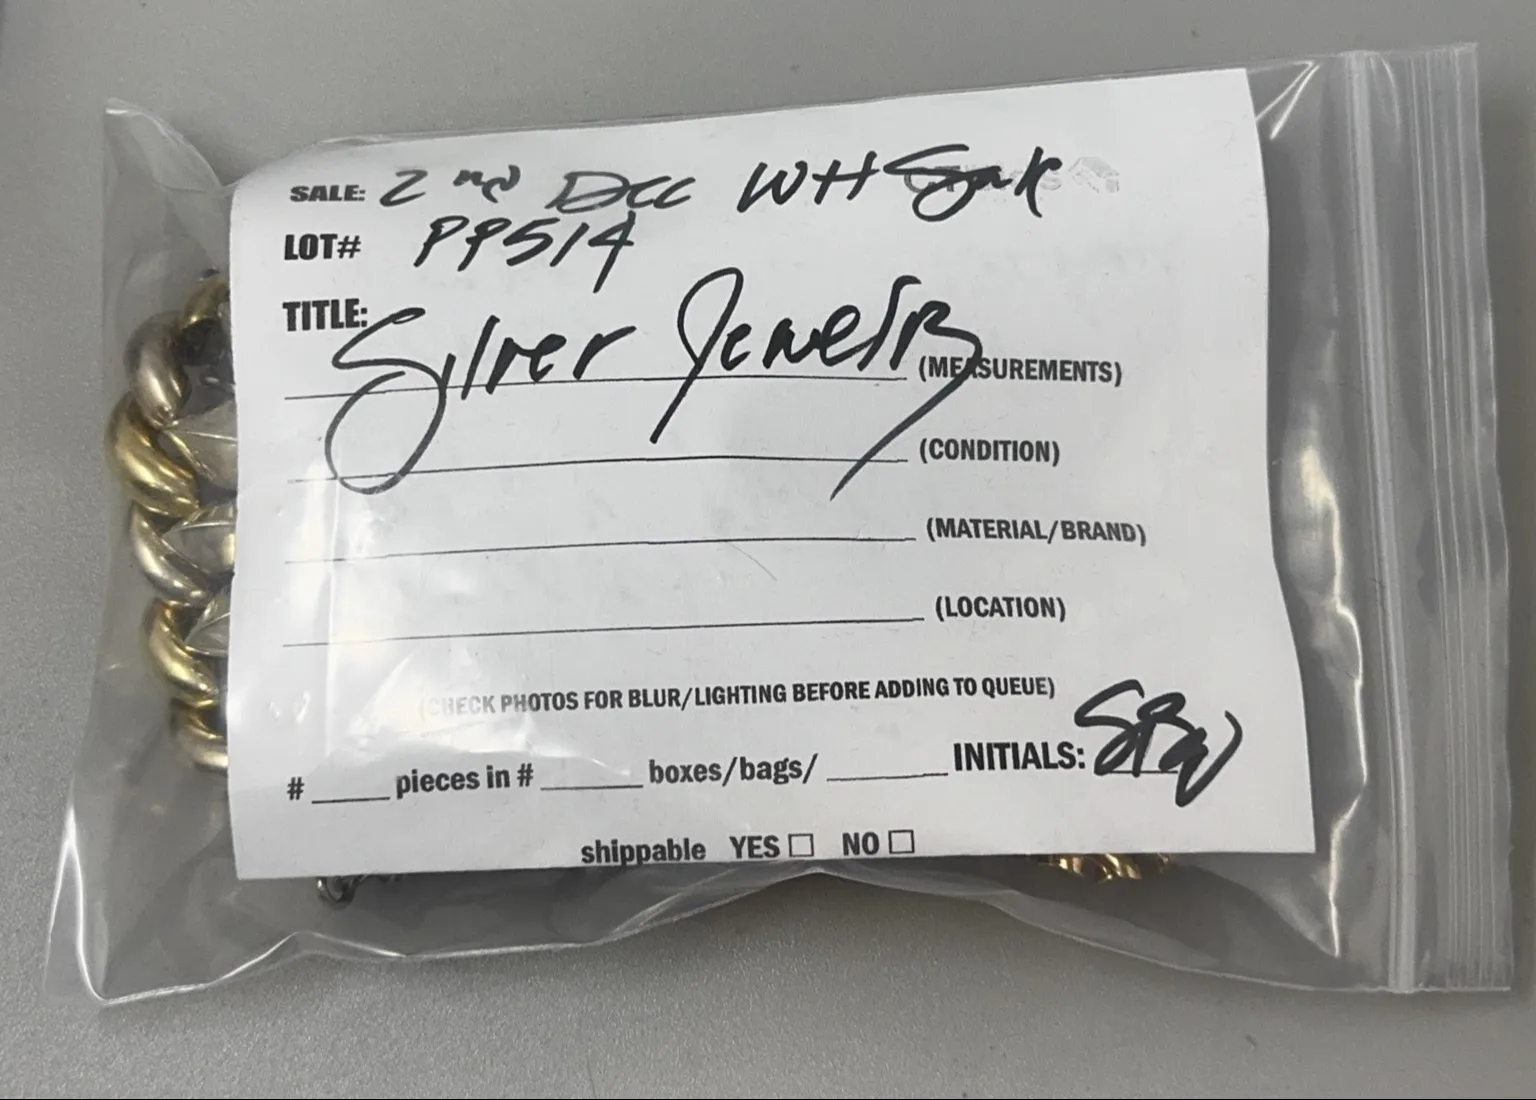 SALE: 2nd Dec WH Sale
LOT# PP514
TITLE: Silver Jewelry
(MEASUREMENTS)
(CONDITION)
(MATERIAL/BRAND)
(LOCATION)
(CHECK PHOTOS FOR BLUR/LIGHTING BEFORE ADDING TO QUEUE)
# pieces in # boxes/bags/ INITIALS:
shippable YES NO